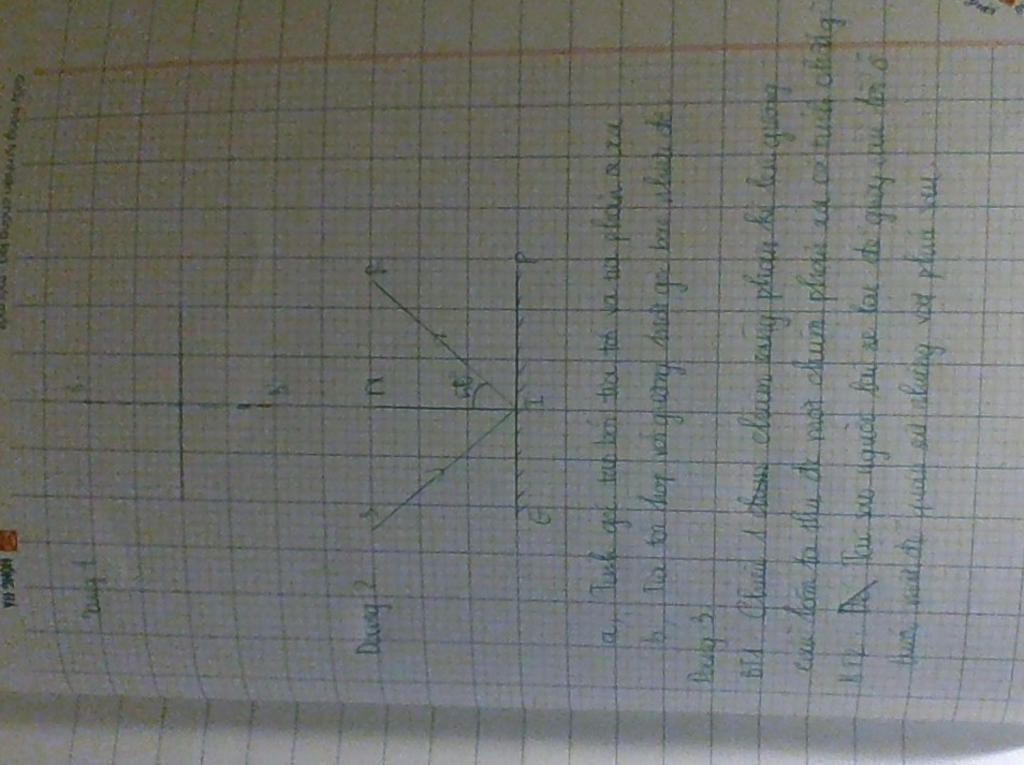 HONG HA
Dạng 1
S
S'
Dạng 2
S N R
I
G P
a, Tính góc tạo bởi tia tới và tia phản xạ
b, Tia tới hợp với gương một góc bao nhiêu độ
Dạng 3
BT1 Chiếu 1 chùm sáng phân kì lên gương
cầu lõm ta thu đc một chùm phản xạ có tính chất gì
BT2 Tại sao người lái xe lại để gương cầu lồi ở
trước mặt để quan sát đường về phía sau